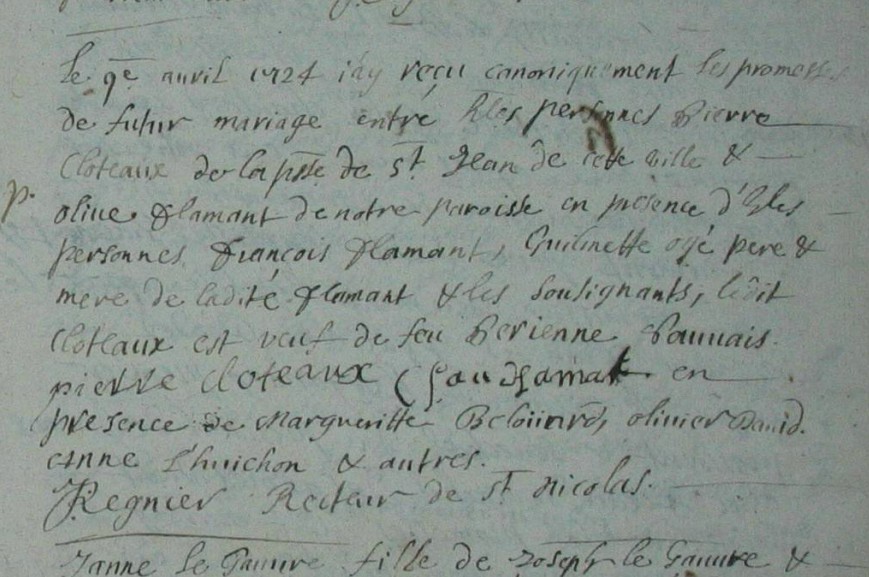 le 9e auril 1724 i'ay reçu canoniquement les promesses
de futur mariage entre hles personnes Pierre
Cloteaux de la psse de St Jean de cette ville &
p. oliue flamant de notre paroisse en presence d'hles
personnes François flamant, Guilmette ogé pere &
mere de ladite flamant & les sousignants, ledit
Cloteaux est veuf de feu Perienne Pauuais.
pierre cloteaux en
presence de Margueritte Beloüard, oliuier Dauid.
anne l'huichon & autres.
Regnier Recteur de St Nicolas.
Janne le Pauure fille de Joseph le Pauure &